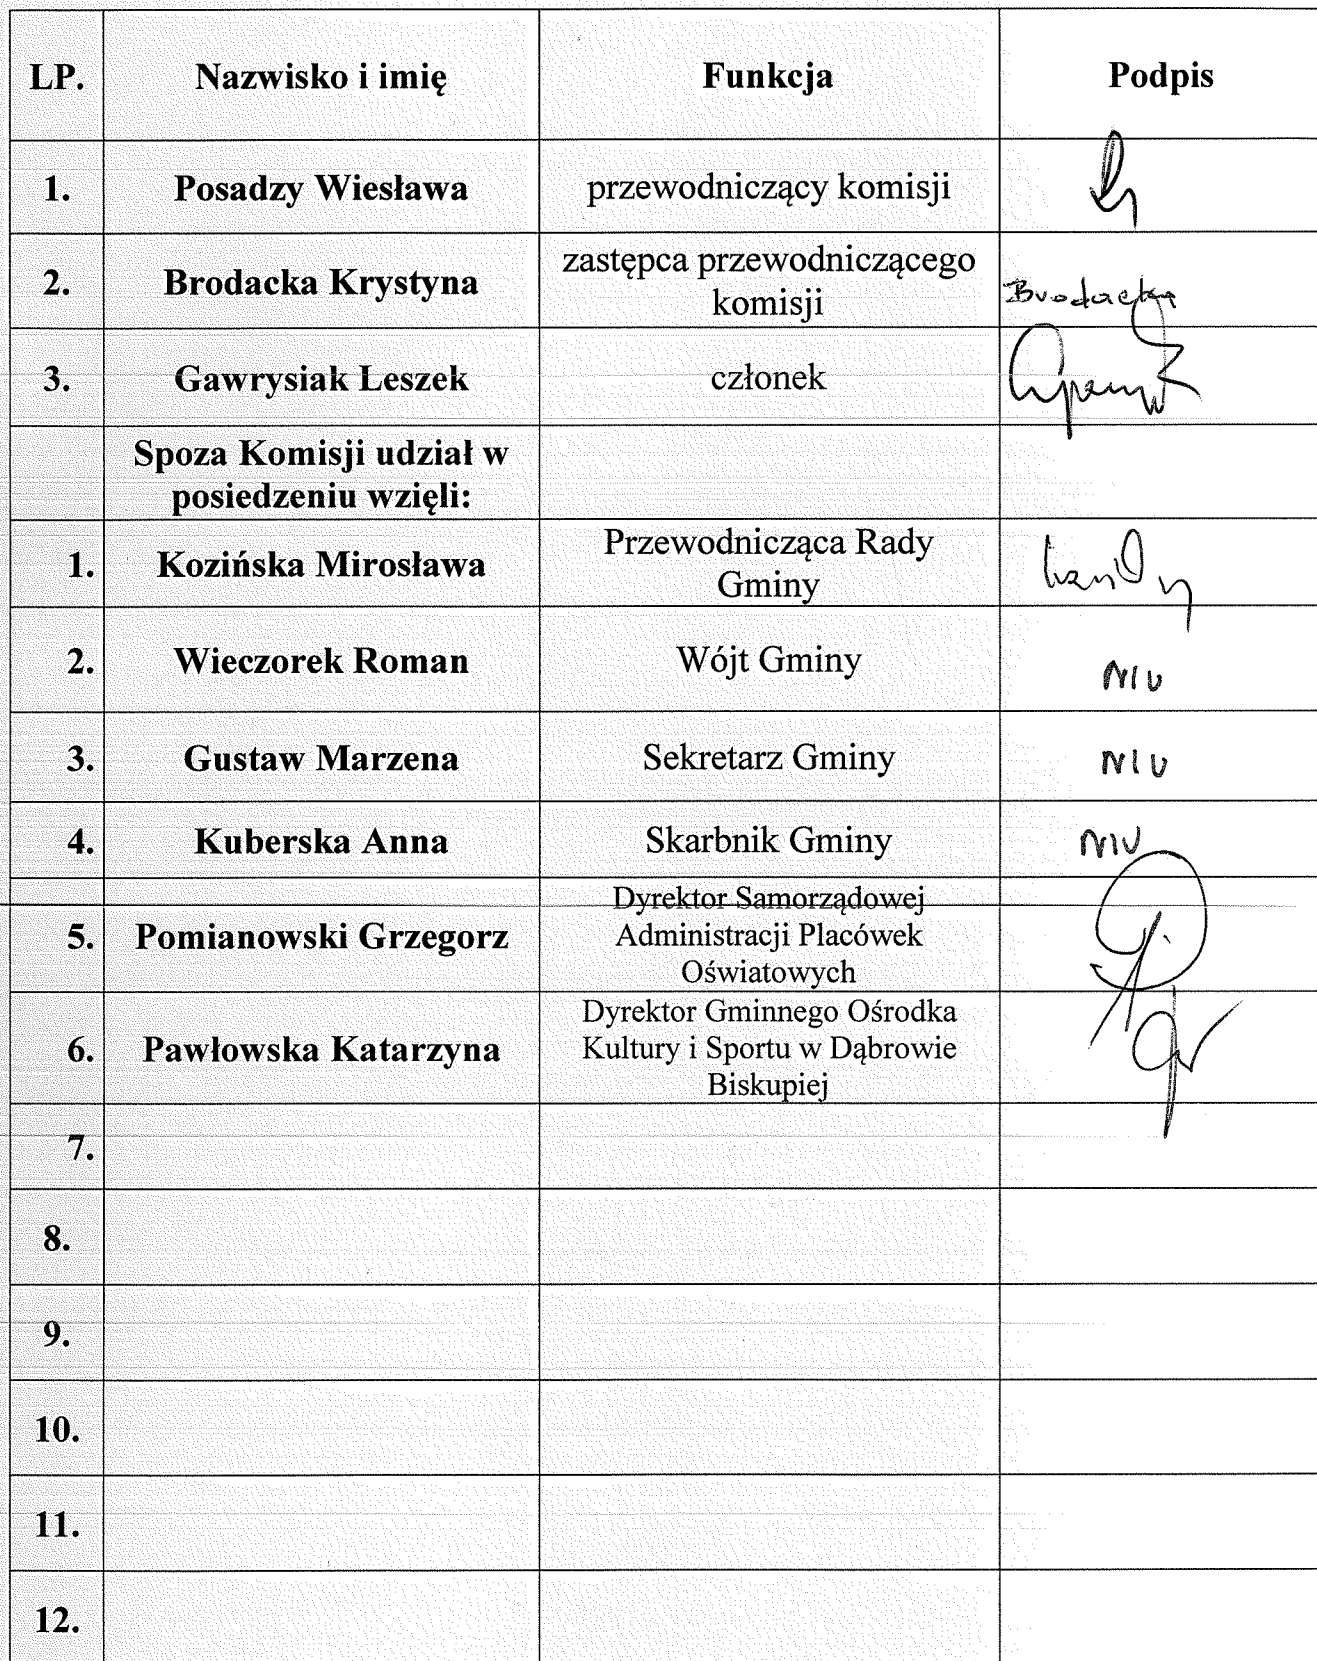 LP. Nazwisko i imię Funkcja Podpis
1. Posadzy Wiesława przewodniczący komisji
2. Brodacka Krystyna zastępca przewodniczącego
komisji Brodacka
3. Gawrysiak Leszek członek
Spoza Komisji udział w
posiedzeniu wzięli:
1. Kozińska Mirosława Przewodnicząca Rady
Gminy
2. Wieczorek Roman Wójt Gminy NIU
3. Gustaw Marzena Sekretarz Gminy NIU
4. Kuberska Anna Skarbnik Gminy NIU
5. Pomianowski Grzegorz Dyrektor Samorządowej
Administracji Placówek
Oświatowych
6. Pawłowska Katarzyna Dyrektor Gminnego Ośrodka
Kultury i Sportu w Dąbrowie
Biskupiej
7.
8.
9.
10.
11.
12.